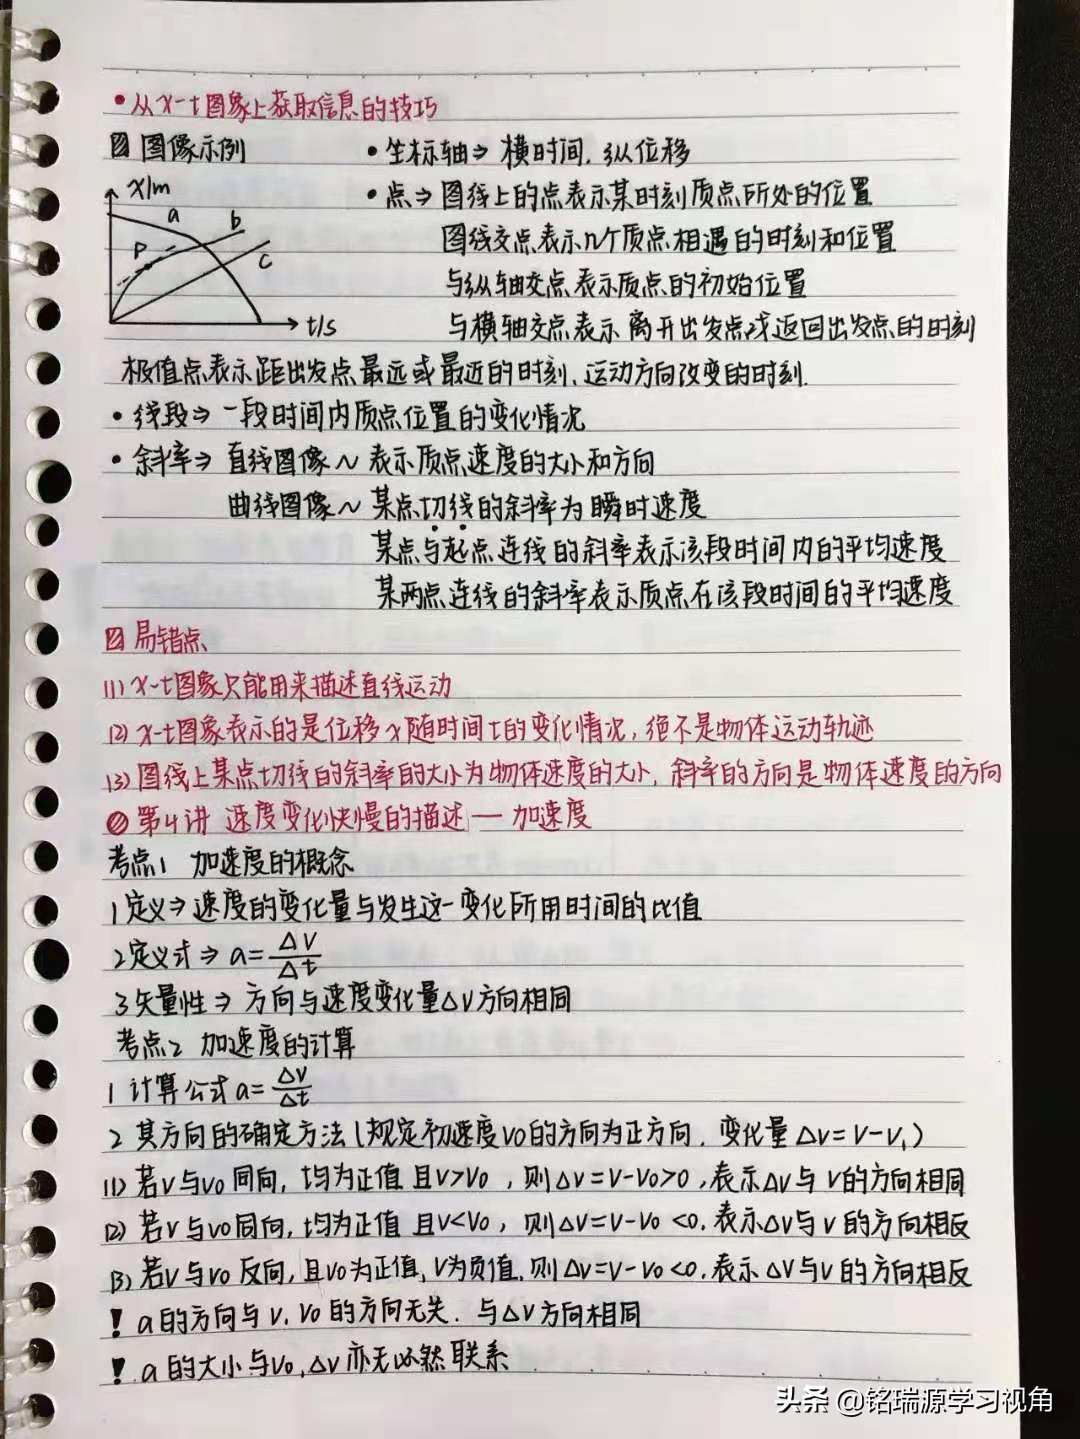 •从x-t图象上获取信息的技巧
图像示例 •坐标轴⇒横时间,纵位移
x/m •点⇒图线上的点表示某时刻质点所处的位置
a b
图线交点表示几个质点相遇的时刻和位置
P c
与纵轴交点表示质点的初始位置
t/s 与横轴交点表示离开出发点或返回出发点的时刻
极值点表示距出发点最远或最近的时刻,运动方向改变的时刻.
•线段⇒一段时间内质点位置的变化情况
•斜率⇒直线图像~表示质点速度的大小和方向
曲线图像~某点切线的斜率为瞬时速度
某点与起点连线的斜率表示该段时间内的平均速度
某两点连线的斜率表示质点在该段时间的平均速度
易错点
(1)x-t图象只能用来描述直线运动
(2)x-t图象表示的是位移x随时间t的变化情况,绝不是物体运动轨迹
(3)图线上某点切线的斜率的大小为物体速度的大小,斜率的方向是物体速度的方向
第4讲 速度变化快慢的描述—加速度
考点1 加速度的概念
1定义⇒速度的变化量与发生这一变化所用时间的比值
2定义式⇒a=ΔV/Δt
3矢量性⇒方向与速度变化量ΔV方向相同
考点2 加速度的计算
1 计算公式a=ΔV/Δt
2 其方向的确定方法(规定初速度V0的方向为正方向,变化量ΔV=V-V1)
(1)若V与V0同向,均为正值且V>V0,则ΔV=V-V0>0,表示ΔV与V的方向相同
(2)若V与V0同向,均为正值且V<V0,则ΔV=V-V0<0,表示ΔV与V的方向相反
(3)若V与V0反向,且V0为正值,V为负值,则ΔV=V-V0<0,表示ΔV与V的方向相反
!a的方向与V,V0的方向无关,与ΔV方向相同
!a的大小与V0,ΔV亦无必然联系
头条@铭瑞源学习视角